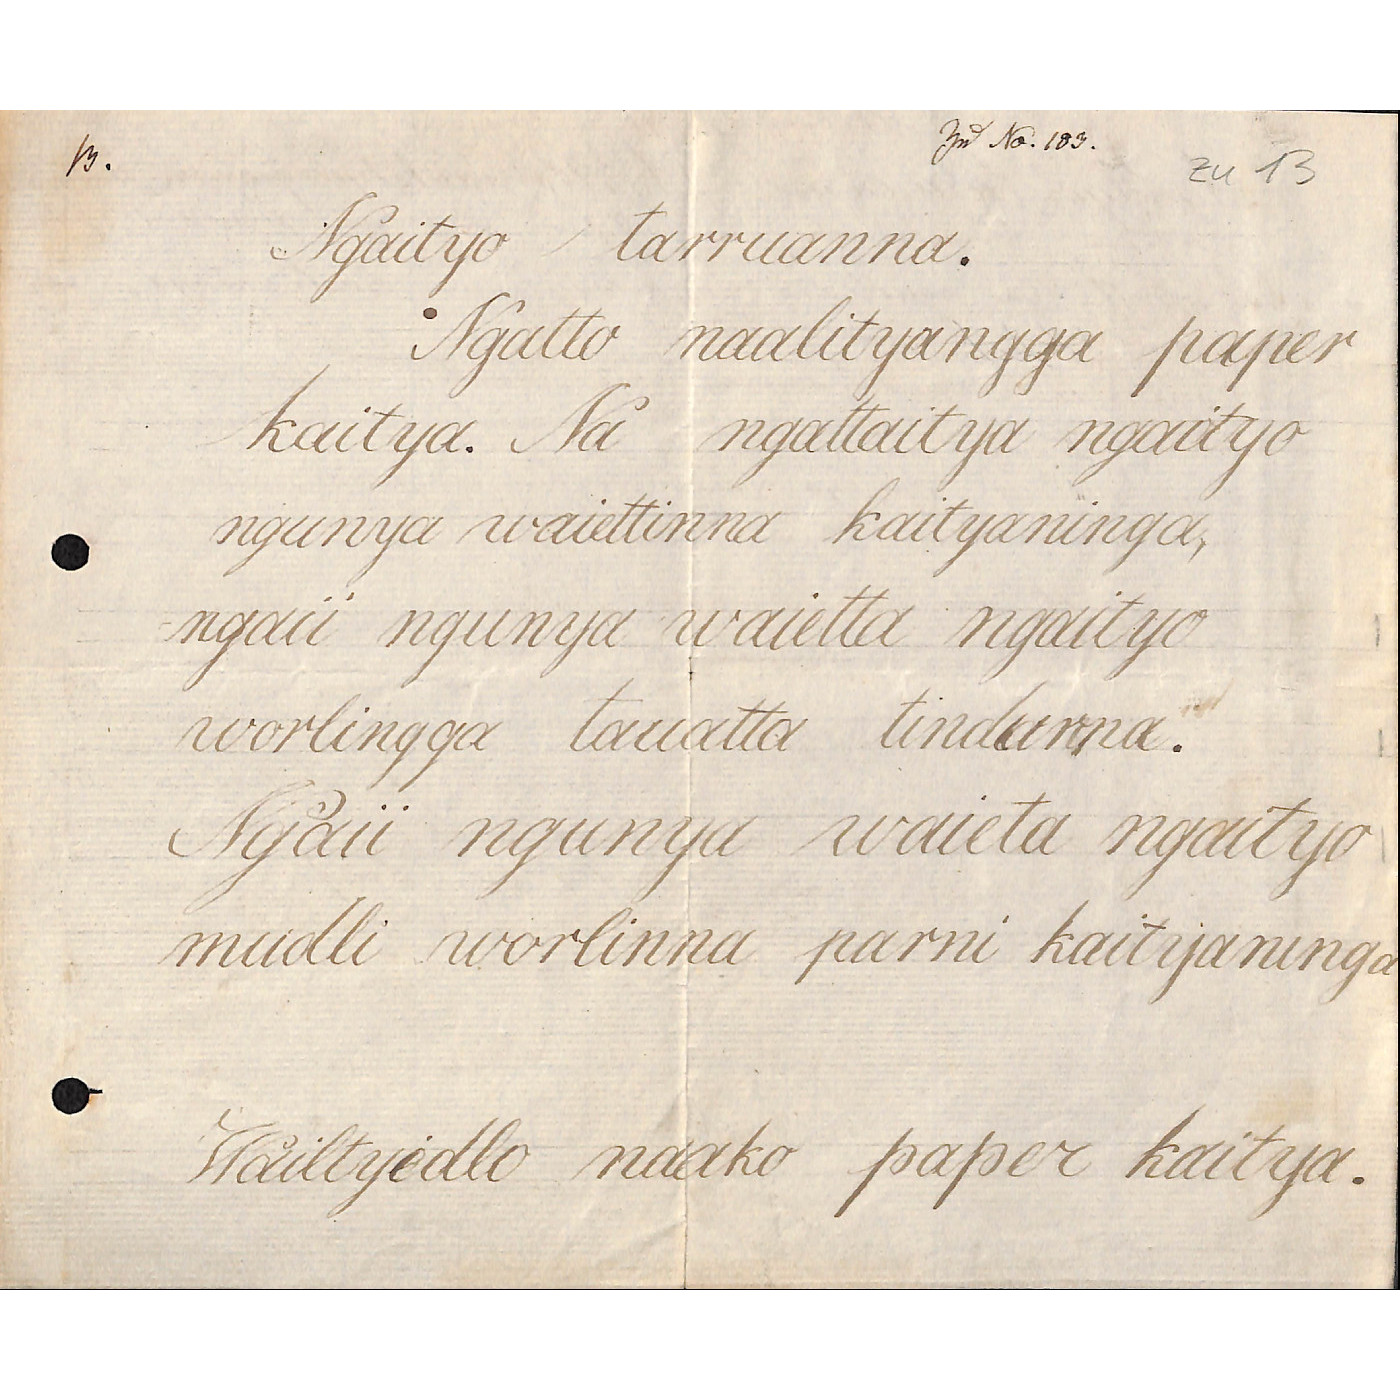 13. No. 183. zu 13
Ngaityo tarruanna.
Ngatto naalityangga paper
kaitya. Na ngattaitya ngaityo
ngunya waiettinna kaityaninga,
ngaii ngunya waietta ngaityo
worlingga tauatta tindurna.
Ngaii ngunya waieta ngaityo
mudli worlinna parni kaityaninga
Wailtyedlo naako paper kaitya.